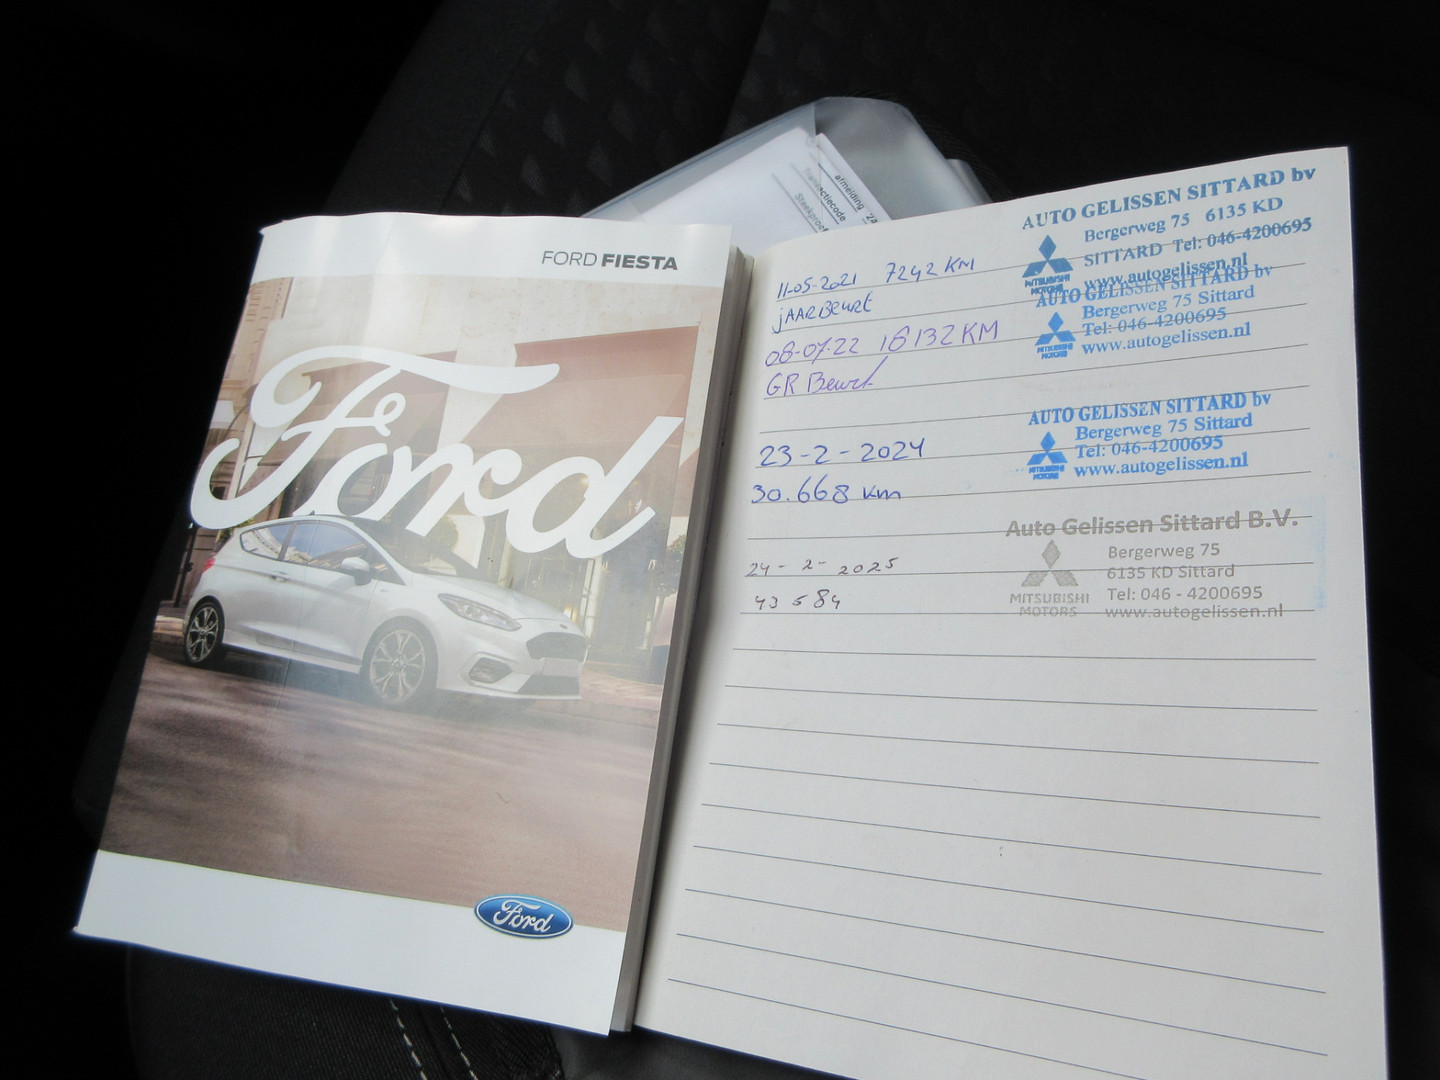 FORD FIESTA
Ford
Ford
afmelding
Transactiecode
11-05-2021 7242 KM
jAARBeurt
08-07-22 16132 KM
GR Beurt
23-2-2024
30.668 km
24-2-2025
43584
AUTO GELISSEN SITTARD bv
Bergerweg 75 6135 KD
SITTARD Tel: 046-4200695
MITSUBISHI MOTORS www.autogelissen.nl
AUTO GELISSEN SITTARD bv
Bergerweg 75 Sittard
Tel: 046-4200695
MITSUBISHI MOTORS www.autogelissen.nl
AUTO GELISSEN SITTARD bv
Bergerweg 75 Sittard
Tel: 046-4200695
MITSUBISHI MOTORS www.autogelissen.nl
Auto Gelissen Sittard B.V.
Bergerweg 75
6135 KD Sittard
MITSUBISHI Tel: 046 - 4200695
MOTORS www.autogelissen.nl